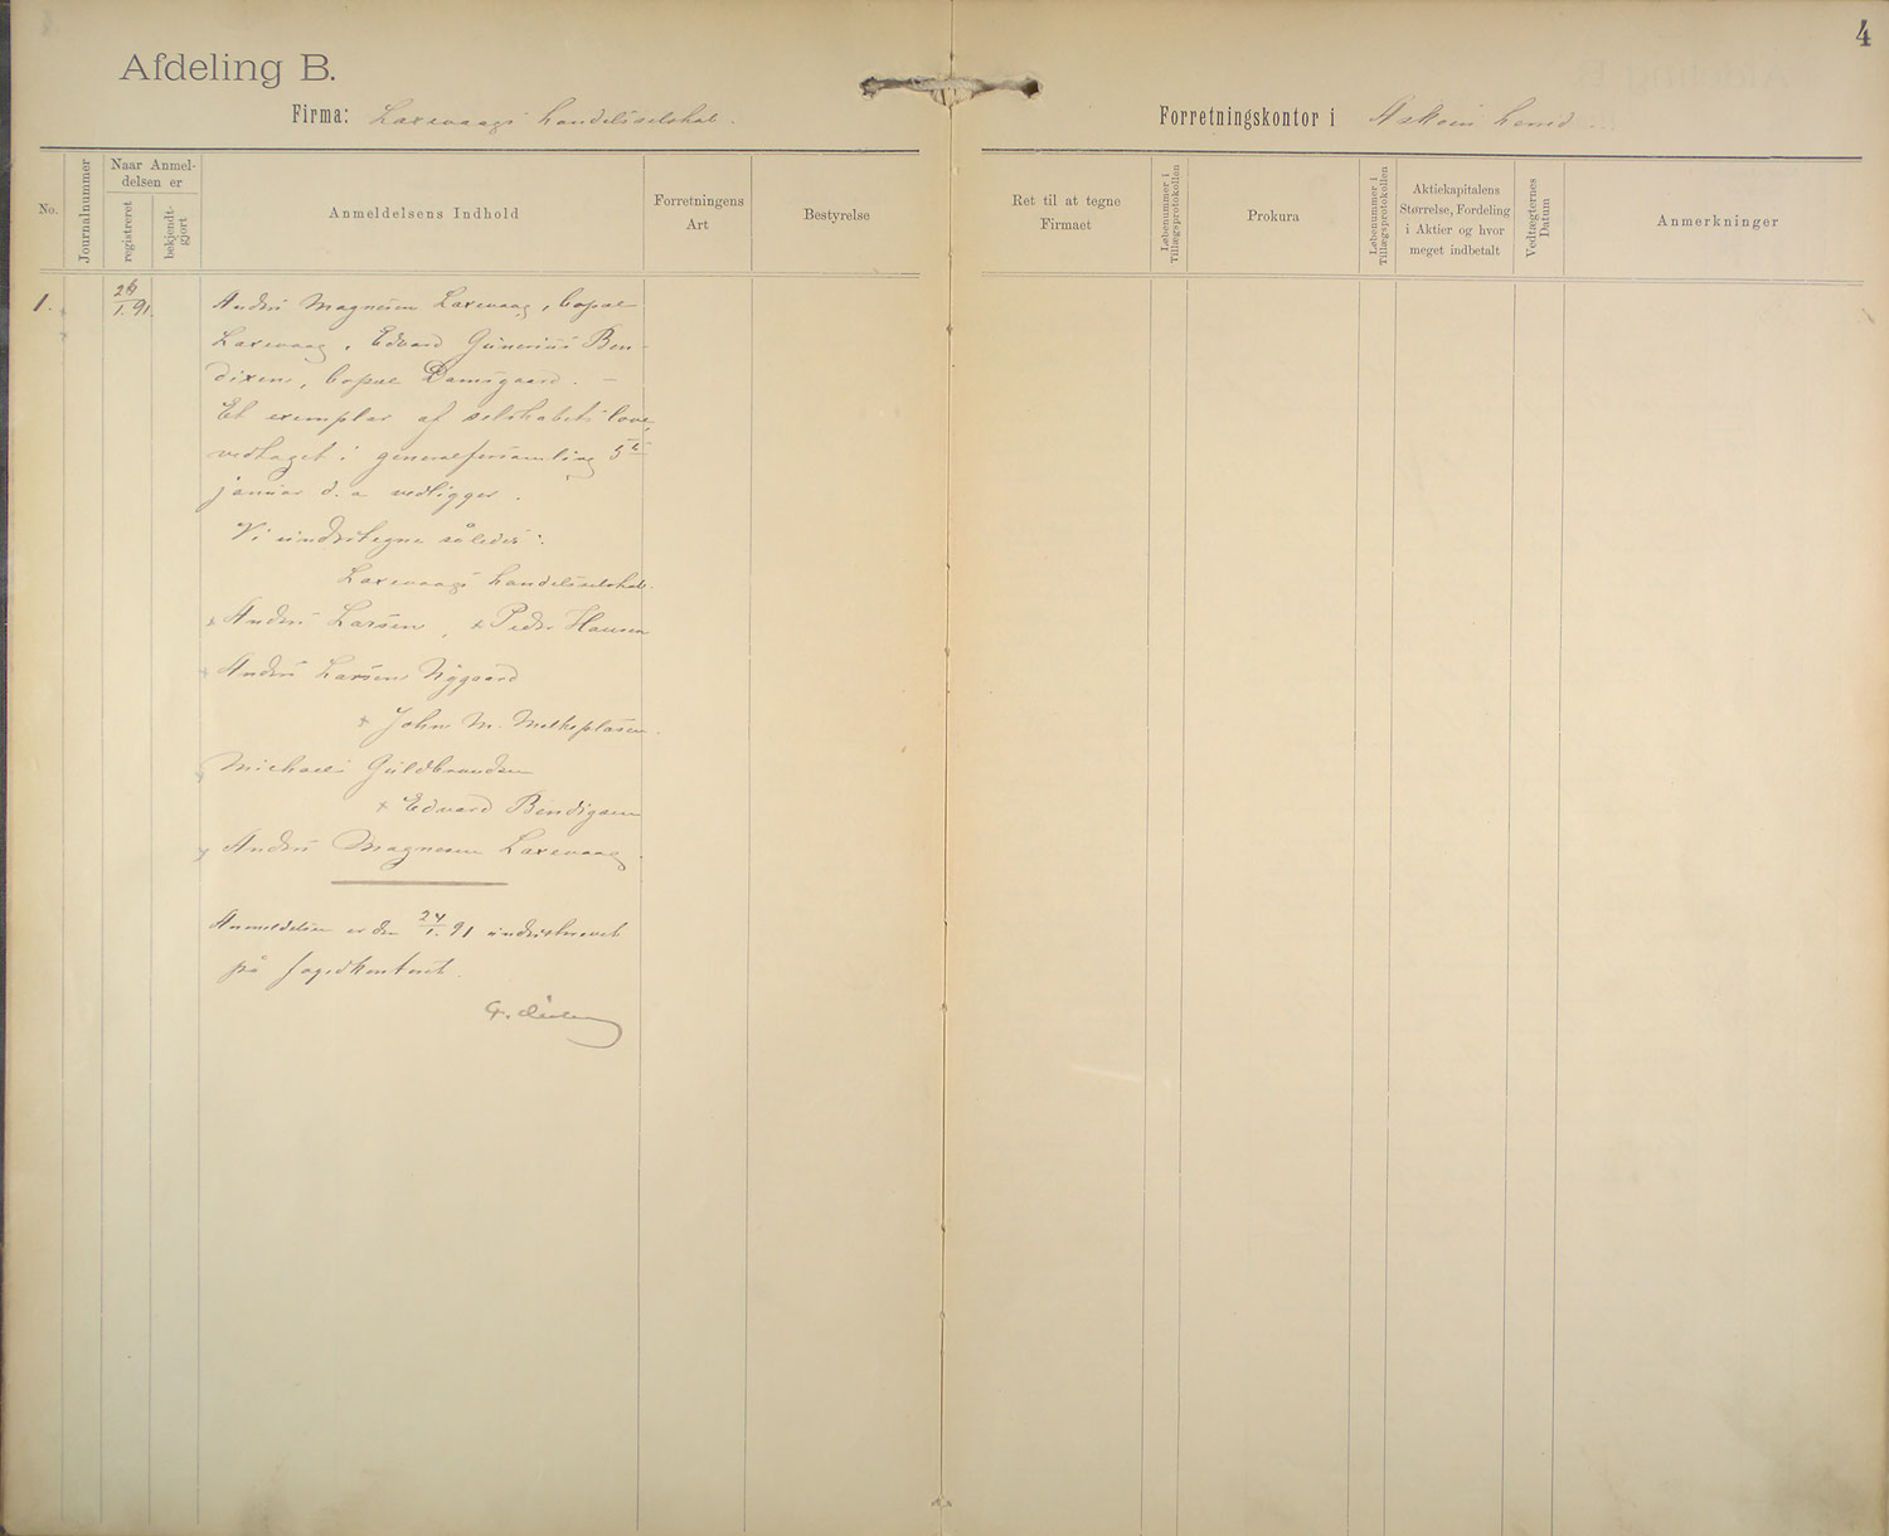 4
Afdeling B.
Firma: Laxevaags handelsselskab.
Forretningskontor i Askøens herred
No.
Journalnummer
Naar Anmel-
delsen er
registreret
bekjendt-
gjort
Anmeldelsens Indhold
Forretningens
Art
Bestyrelse
Ret til at tegne
Firmaet
Løbenummer i
Tillægsprotokollen
Prokura
Løbenummer i
Tillægsprotokollen
Aktiekapitalens
Størrelse, Fordeling
i Aktier og hvor
meget indbetalt
Vedtægternes
Datum
Anmerkninger
1. 26/1. 91. Anders Magnesen Laxevaag, bopæl
Laxevaag, Edvard Günerius Ben-
dixen, bopæl Damsgaard. —
Et exemplar af selskabets love,
vedtaget i generalforsamling 5te
januar d. a vedligger.
Vi undertegne således:
Laxevaags handelsselskab.
x Anders Larsen, x Peder Hansen
x Anders Larsen Nygaard
x John M. Melkeplasen.
x Michael Guldbrandsen
x Edvard Bendigsen
x Anders Magnesen Laxevaag.
Anmeldelsen er den 24/1. 91 underskrevet
på fogedkontoret.